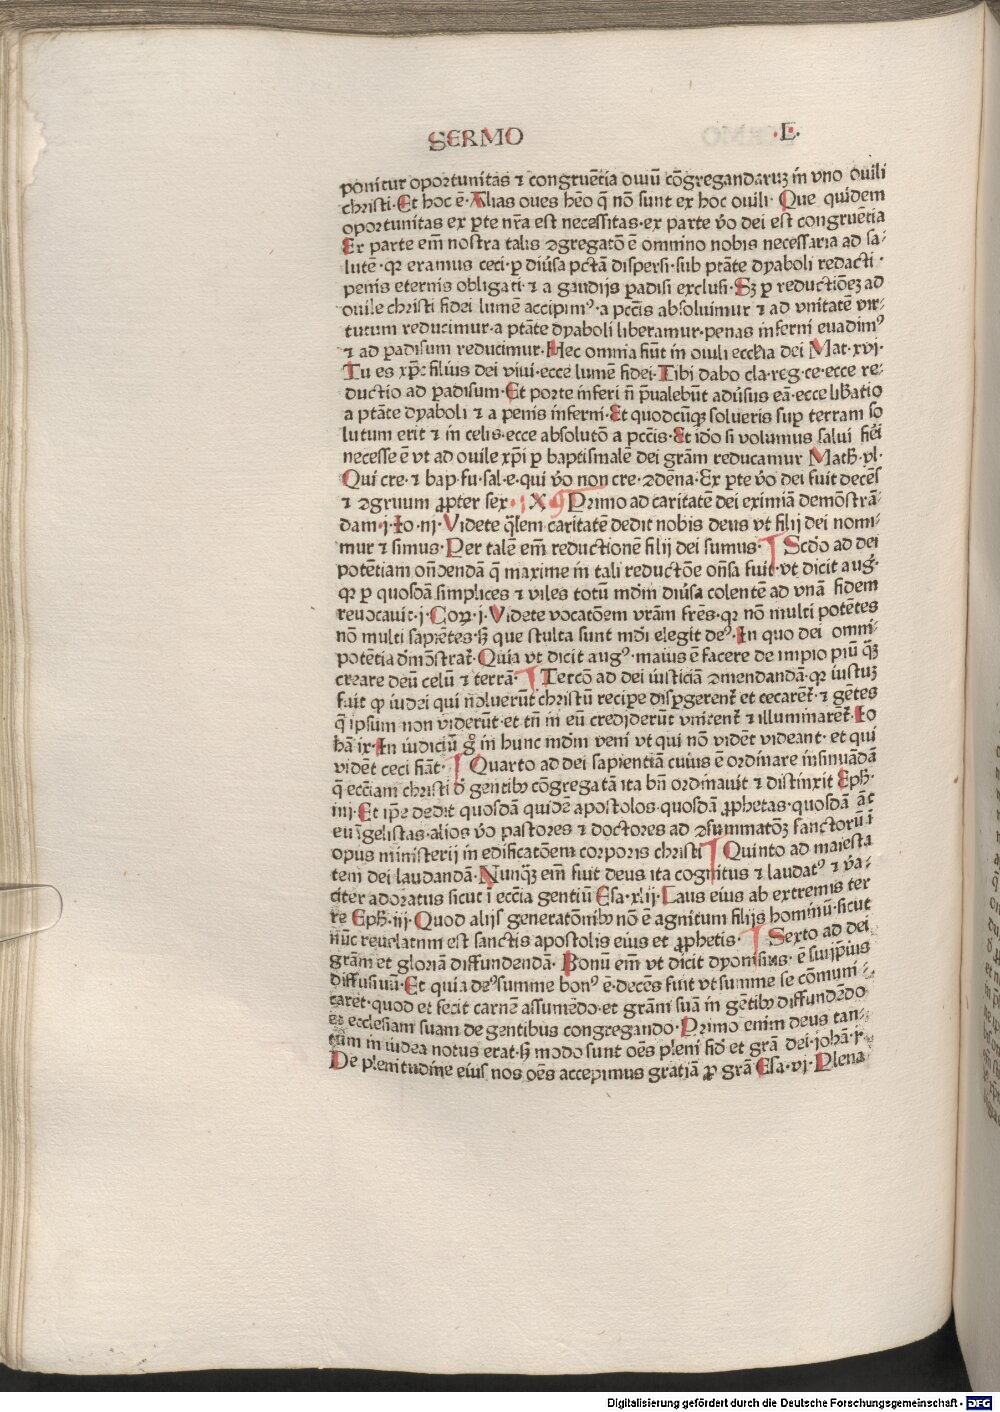 SERMO ·L·
ponitur oportunitas ⁊ congruẽtia ouiũ cõgregandaruꝫ in vno ouili
christi·Et hoc ẽ·Alias oues hẽo q̃ nõ sunt ex hoc ouili· Que quidem
oportunitas ex ꝑte nr̃a est necessitas·ex parte v̾o dei est congruẽtia
Ex parte em̃ nostra talis ꝯgregatõ ẽ omnino nobis necessaria ad sa-
lutẽ·qꝛ eramus ceci·ꝑ diũsa pctã dispersi·sub ptãte dyaboli redacti·
penis eternis obligati·⁊ a gaudijs ꝑadisi exclusi·Sꝫ ꝑ reductiõeꝫ ad
ouile christi fidei lumẽ accipimꝰ·a pcc̃is absoluimur ⁊ ad vnitatẽ vir-
tutum reducimur·a ptãte dyaboli liberamur·penas inferni euadimꝰ
⁊ ad ꝑadisum reducimur·Hec omnia fiũt in ouili eccľia dei Mat·xvj·
Tu es xp̃c filius dei viui·ecce lumẽ fidei·Tibi dabo cla·reg·ce·ecce re-
ductio ad ꝑadisum·Et porte inferi ñ p̃ualebũt adũsus eã·ecce libatio
a ptãte dyaboli ⁊ a penis inferni·Et quodcũqꝫ solueris suꝑ terram so
lutum erit ⁊ in celis·ecce absolutõ a pcc̃is·Et ido si volumus salui fieri
necesse ẽ vt ad ouile xp̃i ꝑ baptismalẽ dei grãm reducamur Math·vl·
Qui cre·⁊ bap·fu·sal·e·qui v̾o non cre·ꝯdẽna·Ex ꝑte v̾o dei fuit decẽs
⁊ ꝯgruum ꝓpter sex· Primo ad caritatẽ dei eximiã demõstrã-
dam·j·Io·iij·Videte q̃lem caritatẽ dedit nobis deus vt filij dei nomi-
mur ⁊ simus·Per talẽ em̃ reductionẽ filij dei sumus· Scdo ad dei
potẽtiam on̾dendã q̃ maxime in tali reductõe on̾sa fuit·vt dicit aug̾·
qꝛ ꝑ quosdã simplices ⁊ viles totũ mdm diũsa colentẽ ad vnã fidem
reuocauit·j·Coꝝ·j·Videte vocatõem vr̃am frẽs·qꝛ nõ multi potẽtes
nõ multi sapiẽtes·sꝫ que stulta sunt mdi elegit deꝰ·In quo dei omni-
potẽtia dmõstrat̾·Quia vt dicit augꝰ·maius ẽ facere de impio piũ qꝫ
creare deũ celũ ⁊ terrã· Tercõ ad dei iusticiã ꝯmendandã·qꝛ iustuꝫ
fuit ꝙ iudei qui nõluerũt christũ recipe disꝑgerent̾ et cecarẽt̾·⁊ gẽtes
q̃ ipsum non viderũt·et tñ in eũ crediderũt vnirent̾ ⁊ illuminarẽt̾·Io
hã ix·In iudiciũ g̊ in hunc mdm veni vt qui nõ vidẽt videant·et qui
vidẽt ceci fiãt· Quarto ad dei sapientiã cuius ẽ ordinare insinuãdã
q̃ ecc̃iam christi d̾ gentibꝰ cõgregatã ita bñ ordinauit ⁊ distinxit Eph̾·
iiij·Et ip̃e dedit quosdã quidẽ apostolos·quosdã ꝓphetas·quosdã ãt
euãgelistas·alios v̾o pastores ⁊ doctores ad ꝯsummatõꝫ sanctorũ ĩ
opus ministerij in edificatõem corporis christi Quinto ad maiesta
tem dei laudandã·Nunqꝫ em̃ fuit deus ita cognitus ⁊ laudatꝰ ⁊ v̾a-
citer adoratus sicut ĩ ecc̃ia gentiũ Esa·xlij·Laus eius ab extremis ter
re Eph̾·iij·Quod alijs generatõnibꝰ nõ ẽ agnitum filijs hominũ·sicut
nũc reuelatum est sanctis apostolis eius et ꝓphetis· Sexto ad dei
grãm et gloriã diffundendã· Bonũ em̃ vt dicit dyonisius·ẽ suiip̃ius
diffusiuũ·Et quia deꝰsumme bonꝰ ẽ·decẽs fuit vt summe se cõmuni-
caret·quod et fecit carnẽ assumẽdo·et grãm suã in gẽtibꝰ diffundẽdo
et ecclesiam suam de gentibus congregando·Primo enim deus tan-
tum in iudea notus erat·sꝫ modo sunt oẽs pleni fid̾ et grã dei·johã·j·
De plenitudine eius nos oẽs accepimus gratiã ꝓ grã Esa·vj·Plena
Digitalisierung gefördert durch die Deutsche Forschungsgemeinschaft - DFG